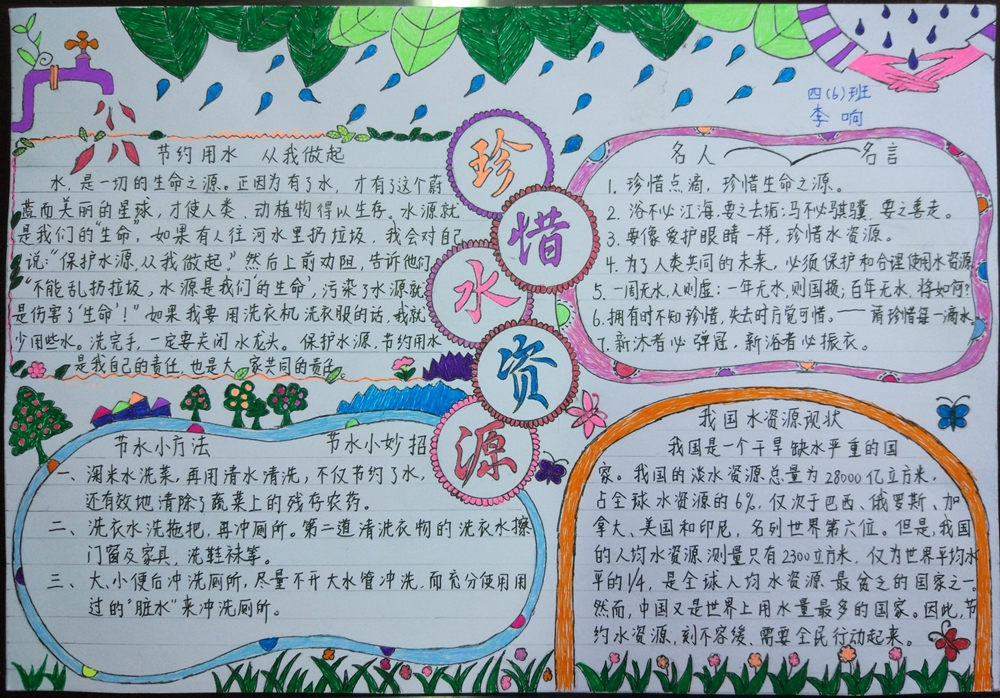 四(6)班
李响
珍惜水资源
节约用水 从我做起
水,是一切的生命之源。正因为有了水,才有了这个蔚
蓝而美丽的星球,才使人类、动植物得以生存。水源就
是我们的“生命”,如果有人往河水里扔垃圾,我会对自己
说:“保护水源,从我做起。”然后上前劝阻,告诉他们
“不能乱扔垃圾,水源是我们的‘生命’,污染了水源就
是伤害了‘生命’!”如果我要用洗衣机洗衣服的话,我就
少用些水。洗完手,一定要关闭水龙头。保护水源,节约用水
是我自己的责任,也是大家共同的责任
名人名言
1. 珍惜点滴,珍惜生命之源。
2. 浴不必江海,要之去垢;马不必骐骥,要之善走。
3. 要像爱护眼睛一样,珍惜水资源。
4. 为了人类共同的未来,必须保护和合理使用水资源
5. 一周无水,人则虚;一年无水,则国损;百年无水,将如何?
6. 拥有时不知珍惜,失去时方觉可惜。——请珍惜每一滴水
7. 新沐者必弹冠,新浴者必振衣。
节水小方法 节水小妙招
一、淘米水洗菜,再用清水清洗,不仅节约了水,
还有效地清除了蔬菜上的残存农药。
二、洗衣水洗拖把,再冲厕所。第二道清洗衣物的洗衣水擦
门窗及家具,洗鞋袜等。
三、大、小便后冲洗厕所,尽量不开大水管冲洗,而充分使用用
过的“脏水”来冲洗厕所。
我国水资源现状
我国是一个干旱缺水严重的国
家。我国的淡水资源总量为28000亿立方米,
占全球水资源的6%,仅次于巴西、俄罗斯、加
拿大、美国和印尼,名列世界第六位。但是,我国
的人均水资源测量只有2300立方米,仅为世界平均水
平的1/4,是全球人均水资源最贫乏的国家之一。
然而,中国又是世界上用水量最多的国家。因此,节
约水资源,刻不容缓、需要全民行动起来。